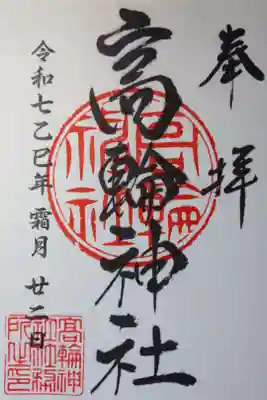 奉拝
高輪神社
令和七乙巳年 霜月 廿二日
高輪神
社社務
所之印